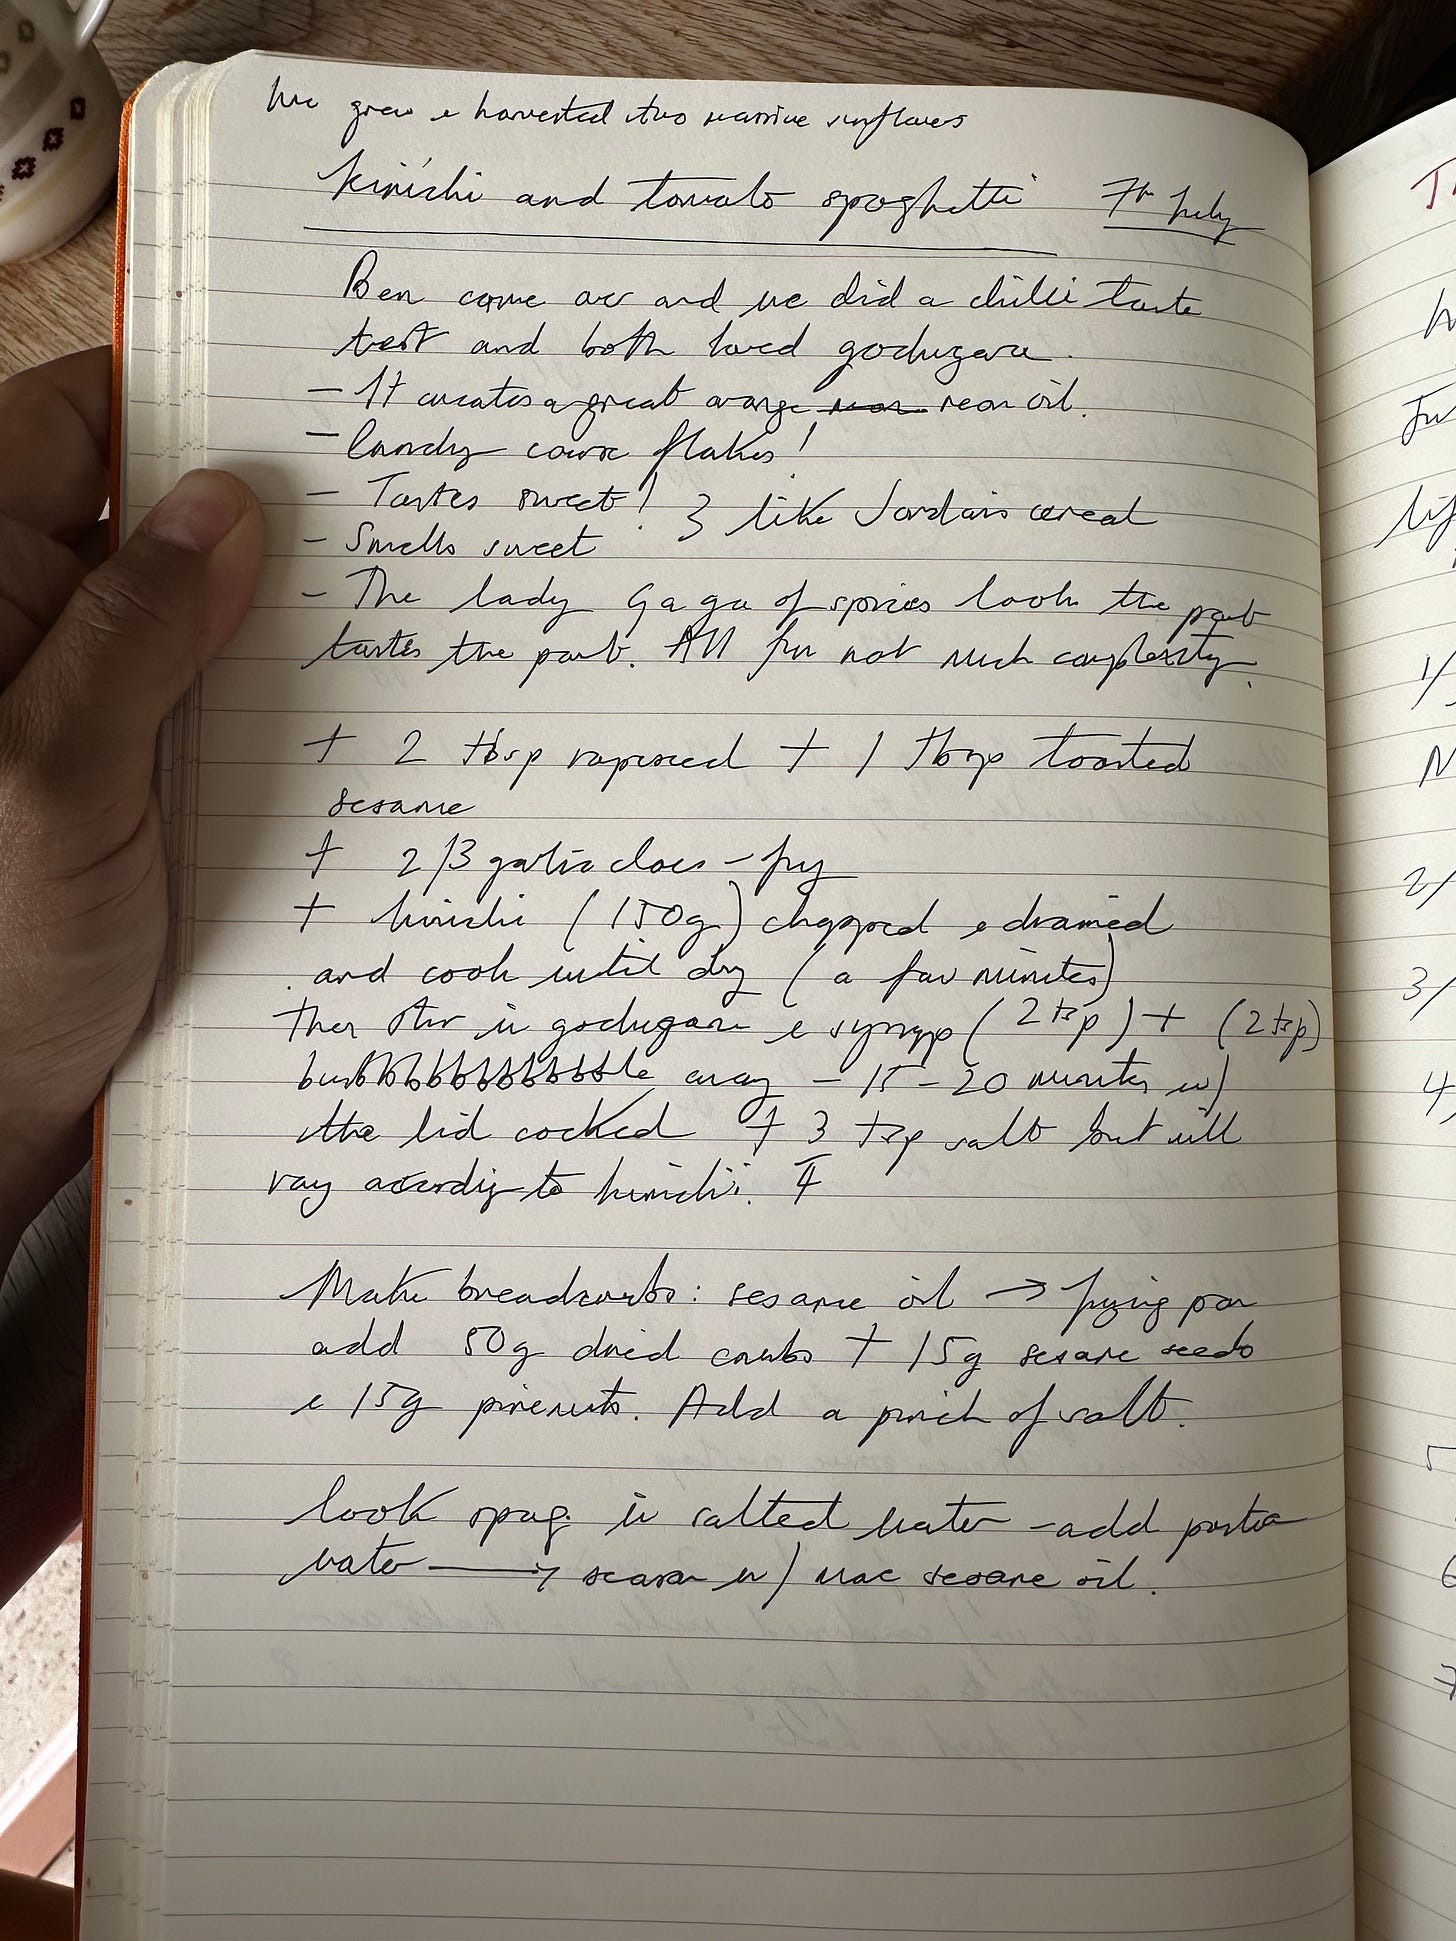 We grew & harvested two massive sunflowers
Kimchi and tomato spaghetti 7th July
Ben came over and we did a chilli taste
test and both loved gochugaru.
- It creates a great orange neon oil.
- Candy coarse flakes!
- Tastes sweet! } like Jordans cereal
- Smells sweet
- The lady Gaga of spices look the part
tastes the part. All fun not much complexity.
+ 2 tbsp rapeseed + 1 tbsp toasted
sesame
+ 2/3 garlic cloves - fry
+ kimchi (150g) chopped & drained
and cook until dry (a few minutes)
Then stir in gochugaru & syrup (2 tsp) + (2 tsp)
bubbbbbbbbbbbbble away - 15-20 minutes w/
the lid cocked + 3/4 tsp salt but will
vary according to kimchi.
Make breadcrumbs: sesame oil → frying pan
add 50g dried crumbs + 15g sesame seeds
& 15g pinenuts. Add a pinch of salt.
Cook spag. in salted water - add pasta
water → season w/ more sesame oil.
T
h
Ju
lif
1/
N
2/
3/
4/
5
6
7